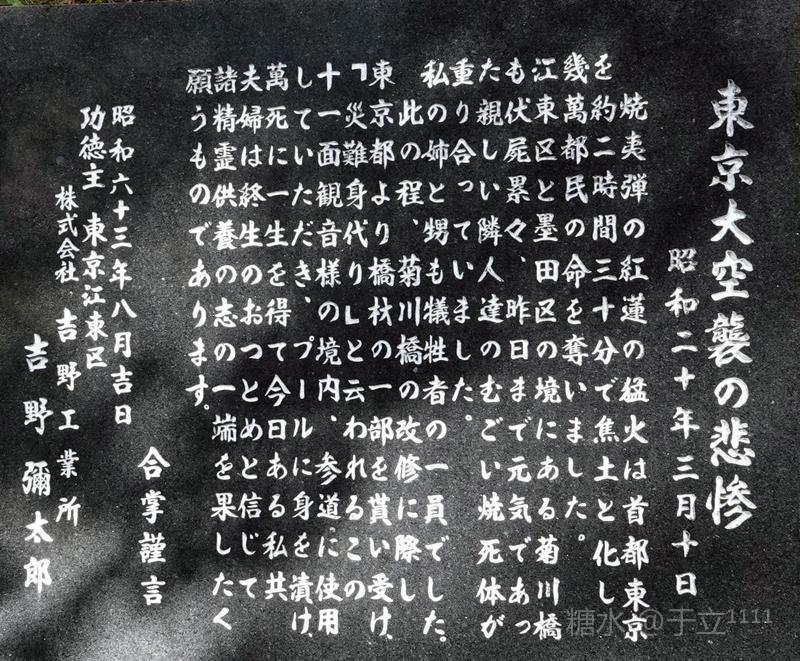 東京大空襲の悲惨
昭和二十年三月十日
焼夷弾の紅蓮の猛火は首都東京
を約二時間三十分で焦土と化し
幾萬都民の命を奪いました。
江東区と墨田区の境にある菊川橋
も伏屍累々、昨日まで元気であっ
た親しい隣人達のむごい焼死体が
重り合っていました。
私の姉と甥も犠牲者の一員でした。
此の程、菊川橋の改修に際し
東京都より橋杖の一部を貰い受け、
「災難身代り」と云われるこの
十一面観音様の境内、参道に使用
していただき、プールに身を漬け、
萬死に一生を得て今日ある私共
夫婦は終生のおつとめと信じて
諸精霊供養の志の一端を果したく
願うものであります。
合掌謹言
昭和六十三年八月吉日
功徳主 東京江東区
株式会社 吉野工業所
吉野彌太郎
糖水@于立1111